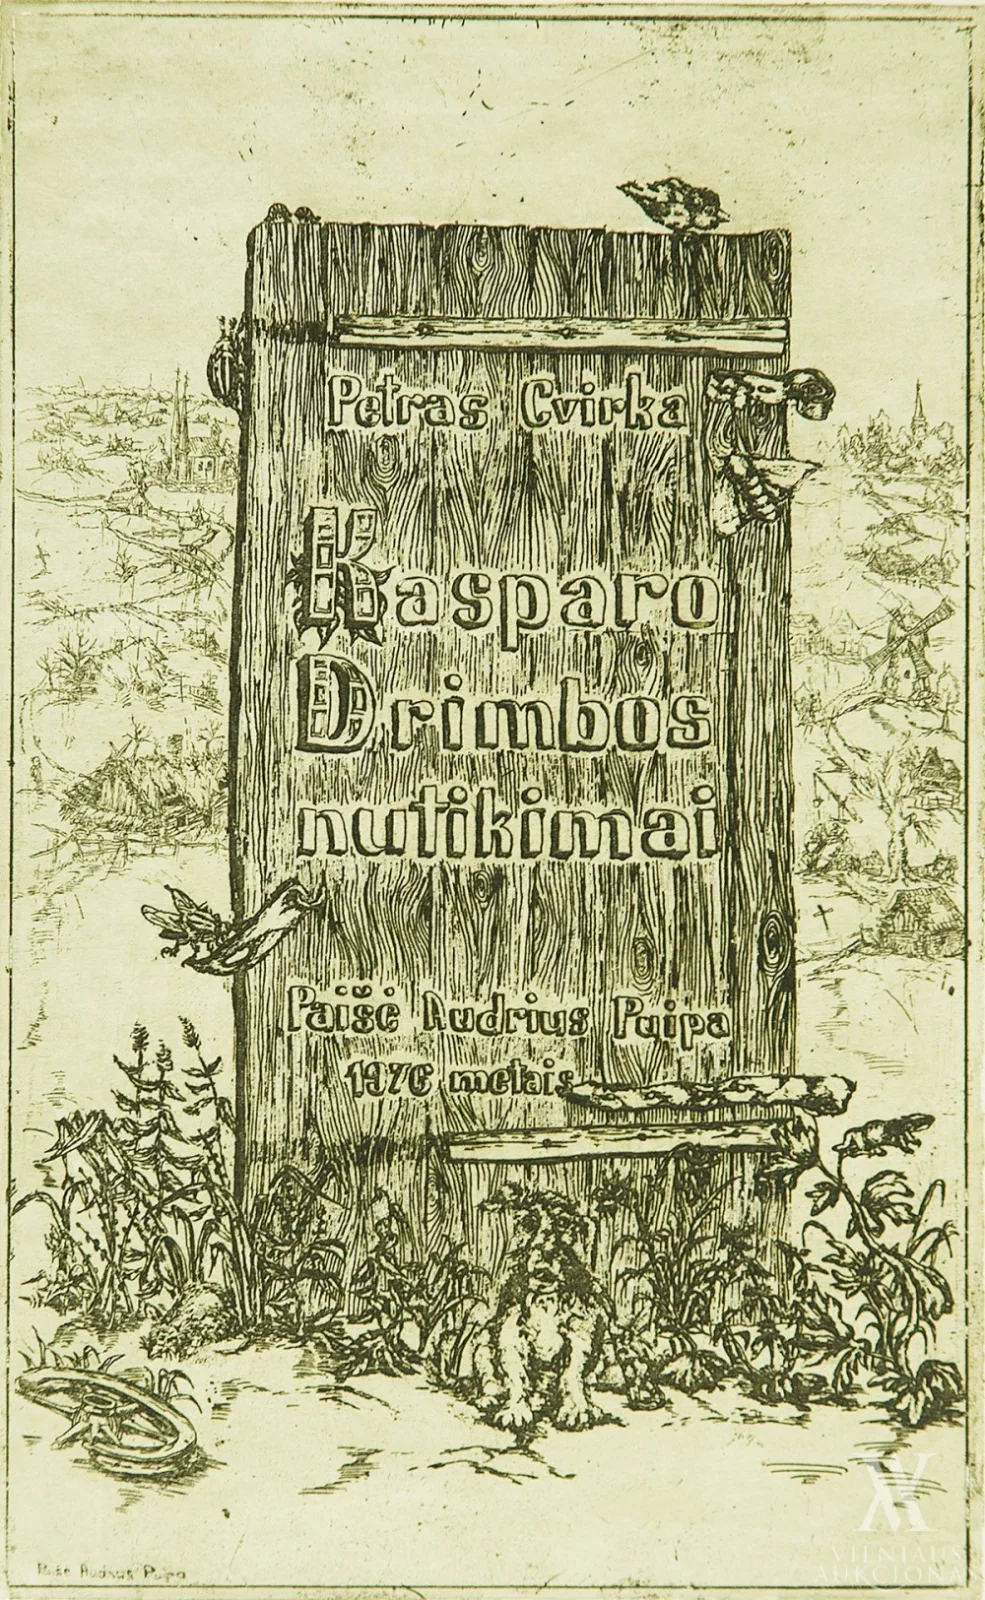 Petras Cvirka
Kasparo
Drimbos
nutikimai
Paišė Audrius Puipa
1976 metais
Paišė Audrius Puipa
VILNIAUS
AUKCIONAS